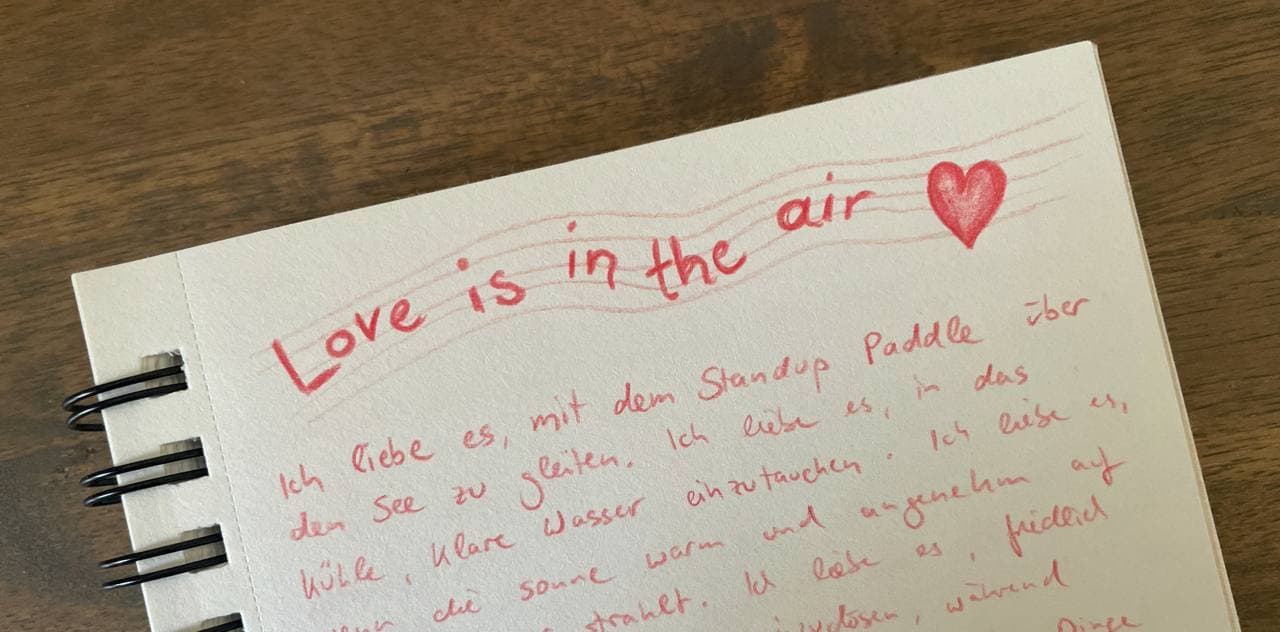 Love is in the air
Ich liebe es, mit dem Standup Paddle über
den See zu gleiten. Ich liebe es, in das
kühle, klare Wasser einzutauchen. Ich liebe es,
die Sonne warm und angenehm auf
strahlt. Ich liebe es, friedlich
während
Dinge